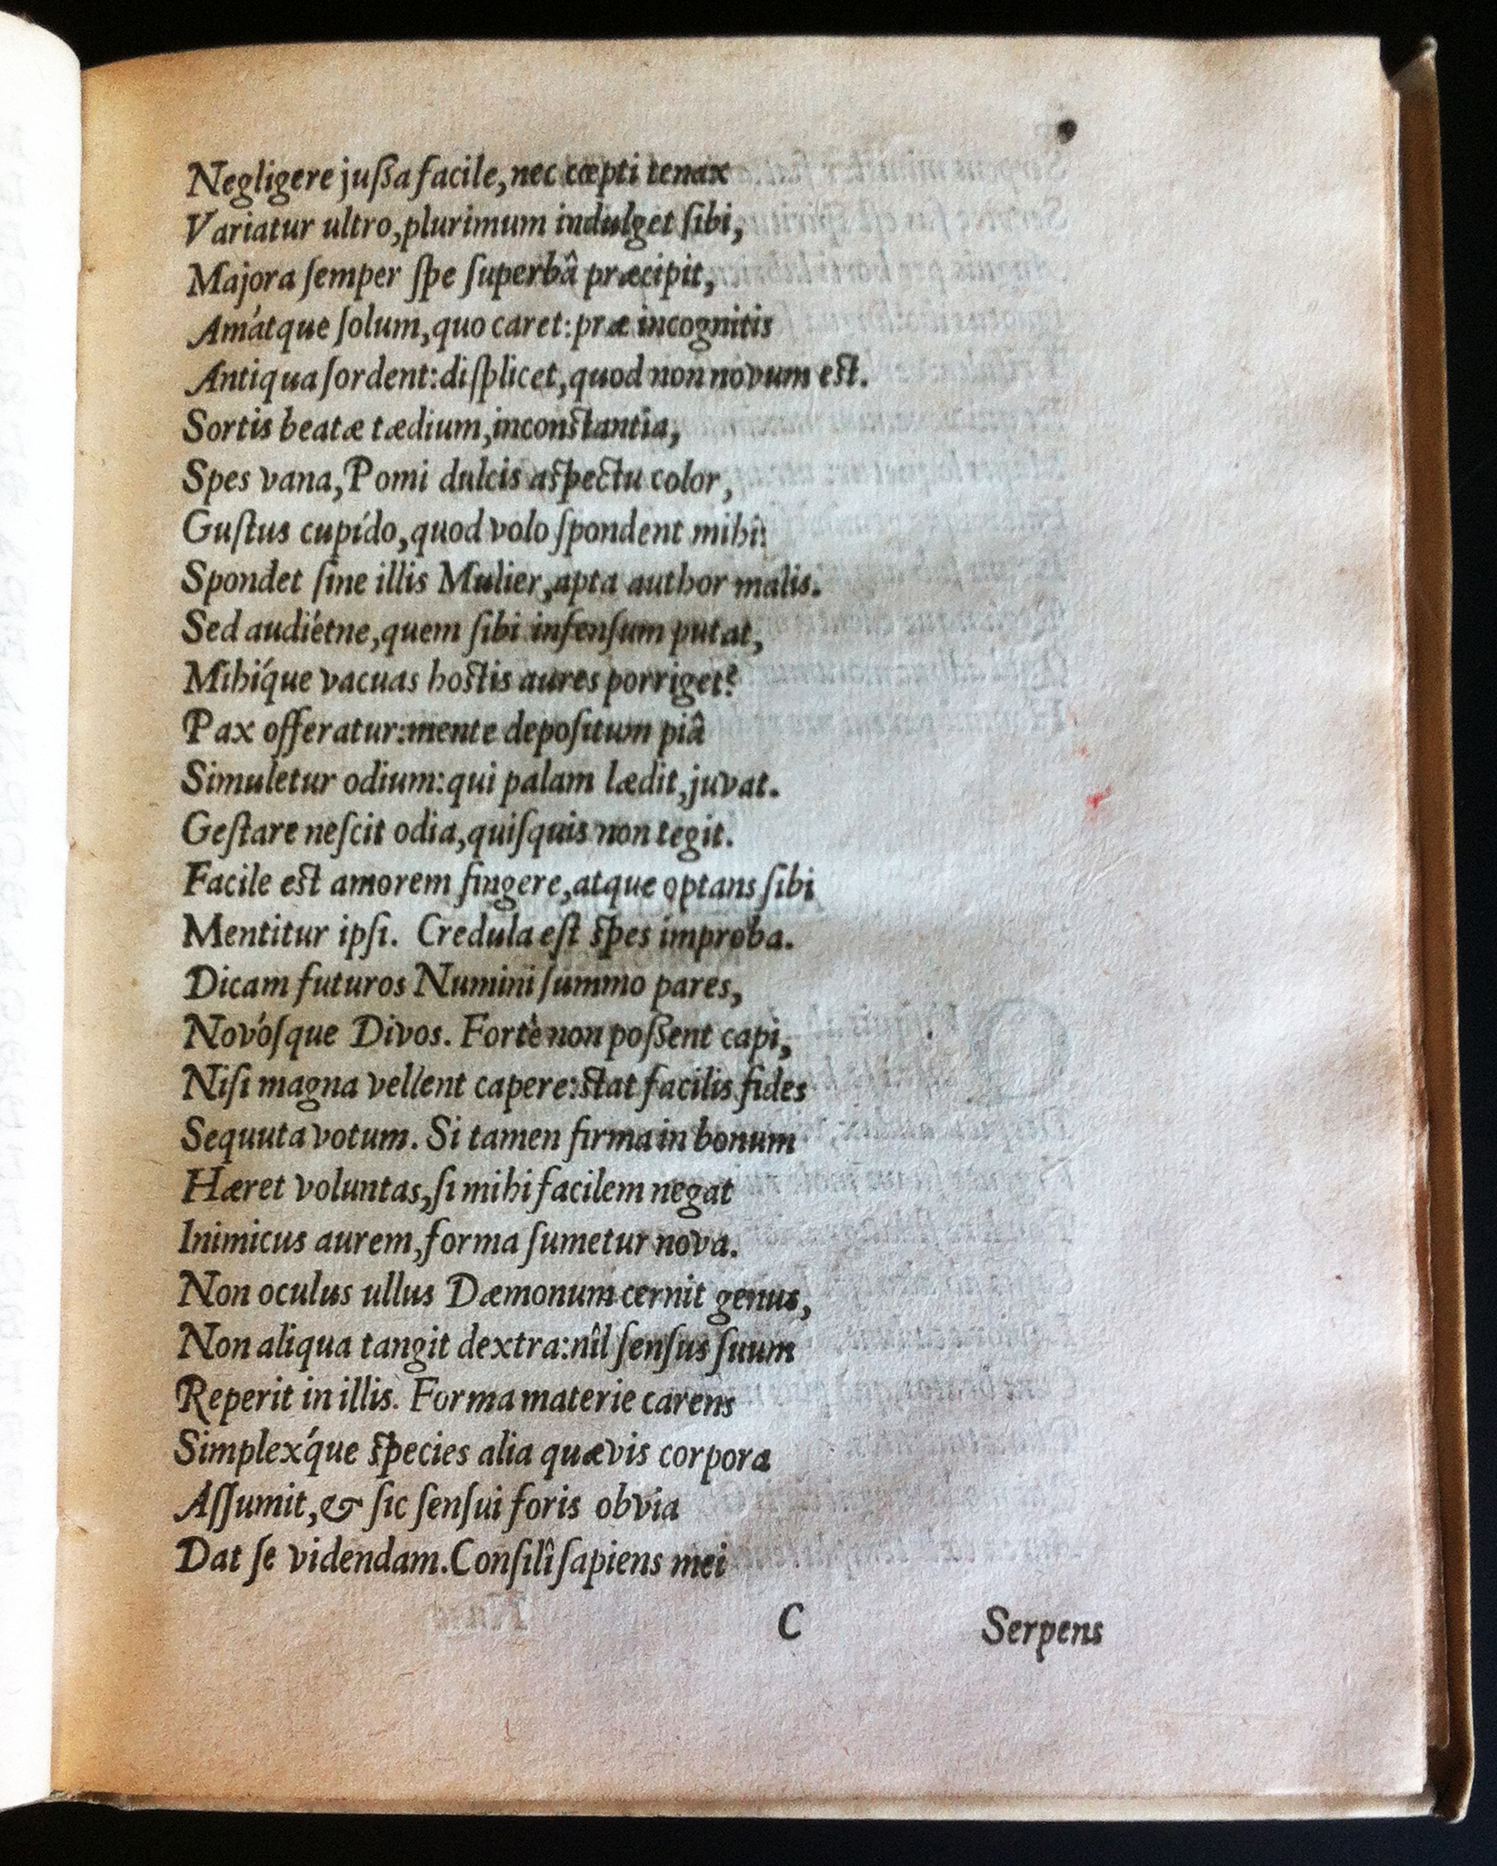 Negligere juſſa facile, nec cœpti tenax
Variatur ultro, plurimum indulget ſibi,
Majora ſemper ſpe ſuperbâ præcipit,
Amátque ſolum, quo caret: præ incognitis
Antiqua ſordent: diſplicet, quod non novum est.
Sortis beatæ tædium, inconstantia,
Spes vana, Pomi dulcis aspectu color,
Guſtus cupído, quod volo ſpondent mihi:
Spondet ſine illis Mulier, apta author malis.
Sed audiétne, quem ſibi infenſum putat,
Mihíque vacuas hostis aures porriget?
Pax offeratur: mente depoſitum piâ
Simuletur odium: qui palam lædit, juvat.
Geſtare neſcit odia, quiſquis non tegit.
Facile est amorem fingere, atque optans ſibi
Mentitur ipſi. Credula eſt spes improba.
Dicam futuros Numini ſummo pares,
Novóſque Divos. Fortè non poſſent capi,
Niſi magna vellent capere: stat facilis fides
Sequuta votum. Si tamen firma in bonum
Hæret voluntas, ſi mihi facilem negat
Inimicus aurem, forma ſumetur nova.
Non oculus ullus Dæmonum cernit genus,
Non aliqua tangit dextra: nîl ſenſus ſuum
Reperit in illis. Forma materie carens
Simplexq́ue species alia quævis corpora
Aſſumit, & ſic ſenſui foris obvia
Dat ſe videndam. Conſilî ſapiens mei
C Serpens